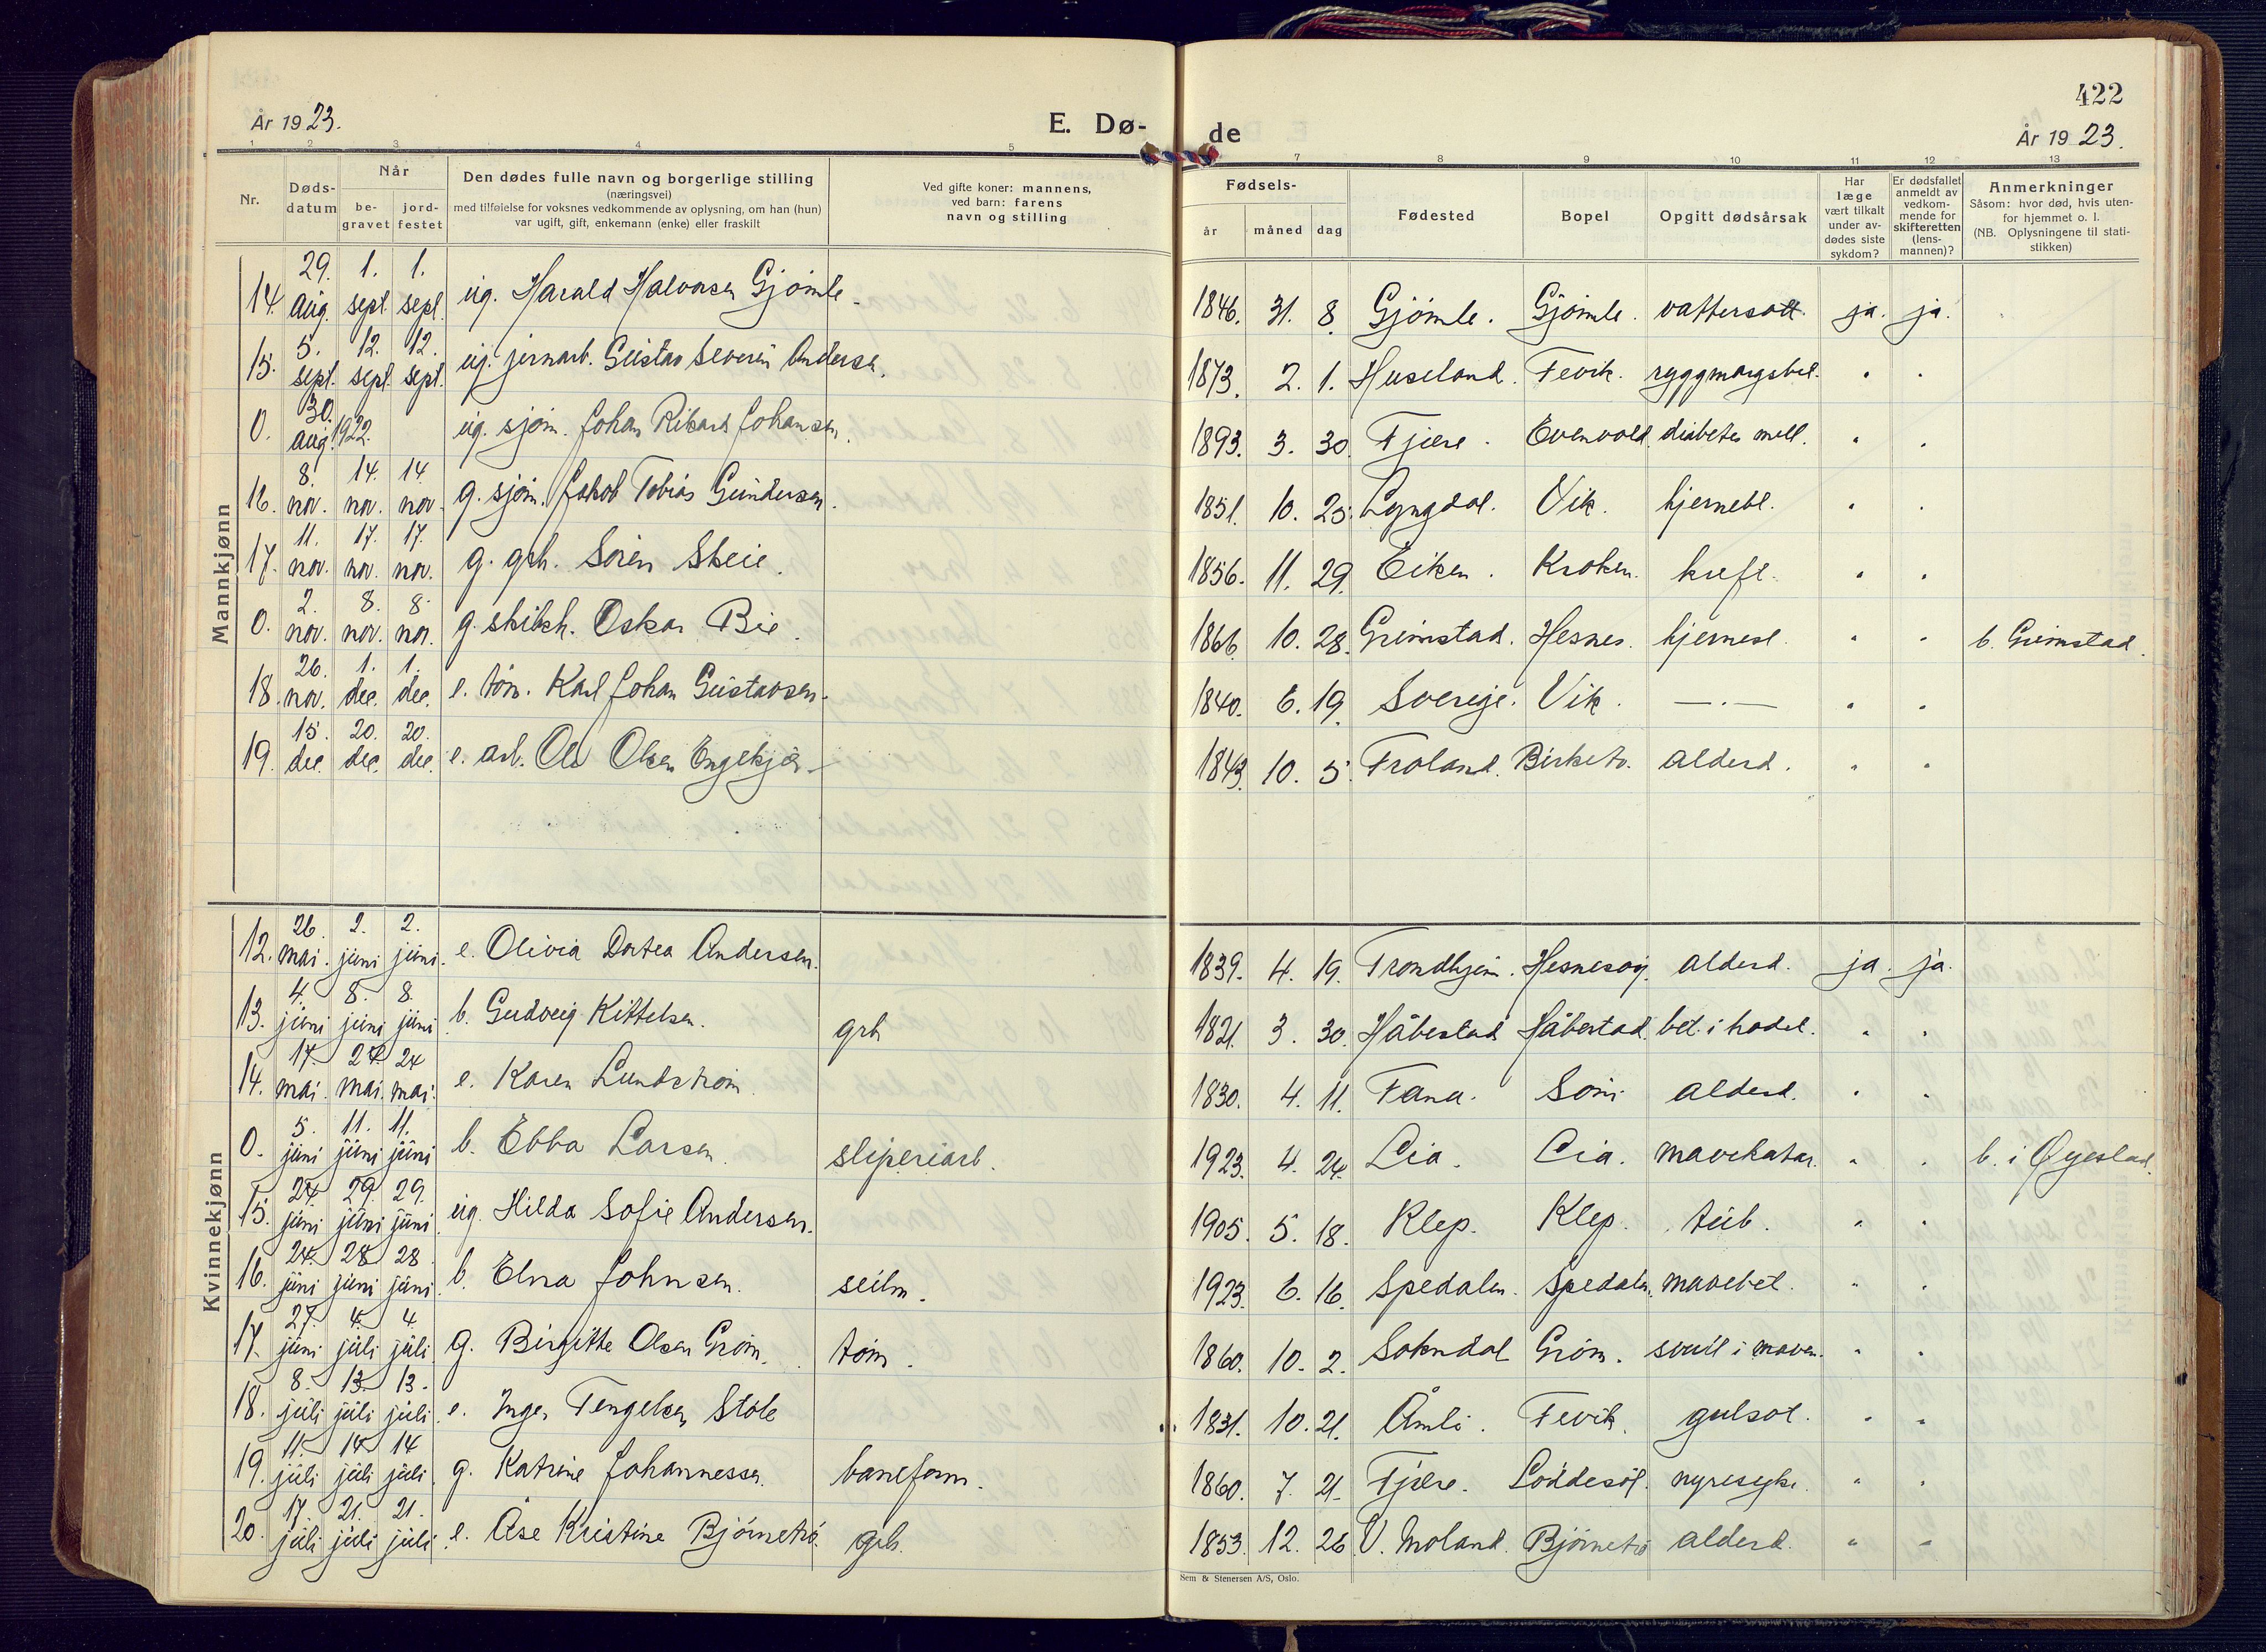 År 1923.
E. Dø-
de
422
År 1923.
1 2 3 4 5 7 8 9 10 11 12 13
Nr.
Døds-
datum
Når
be-
gravet
jord-
festet
Den dødes fulle navn og borgerlige stilling
(næringsvei)
med tilføielse for voksnes vedkommende av oplysning, om han (hun)
var ugift, gift, enkemann (enke) eller fraskilt
Ved gifte koner: mannens,
ved barn: farens
navn og stilling
Fødsels-
år måned dag
Fødested
Bopel
Opgitt dødsårsak
Har
læge
vært tilkalt
under av-
dødes siste
sykdom?
Er dødsfallet
anmeldt av
vedkom-
mende for
skifteretten
(lens-
mannen)?
Anmerkninger
Såsom: hvor død, hvis uten-
for hjemmet o. l.
(NB. Oplysningene til stati-
stikken)
Mannkjønn
14. 29. aug. 1. sept. 1. sept. ug. Harald Halvorsen Gjømle 1846. 31. 8. Gjømle. Gjømle. vattersott. ja. ja.
15. 5. sept. 12. sept. 12. sept. ug. jernarb. Gustav Severin Andersen. 1873. 2. 1. Huseland. Fevik. ryggmargsbet. " "
0. 30. aug. 1922. ug. sjøm. Johan Rikard Johansen. 1893. 3. 30. Fjære. Evenvold. diabetes mell. " "
16. 8. nov. 14. nov. 14. nov. g. sjøm. Jakob Tobias Gundersen. 1851. 10. 25. Lyngdal. Vik. hjernebl. " "
17. 11. nov. 17. nov. 17. nov. g. grb. Søren Skeie. 1856. 11. 29. Eiken. Kroken. kreft. " "
0. 2. nov. 8. nov. 8. nov. g. Oskar Bie. 1866. 10. 28. Grimstad. Hesnes. hjernesl. " " b. Grimstad.
18. 26. nov. 1. dec. 1. dec. e. tøm. Karl Johan Gustavsen. 1840. 6. 19. Sverige. Vik. —.— " "
19. 15. dec. 20. dec. 20. dec. e. arb. Ole Olsen Engekjær 1843. 10. 5. Froland. Birketv. alderd. " "
Kvinnekjønn
12. 26. mai. 2. juni 2. juni. e. Olivia Dortea Andersen. 1839. 4. 19. Trondhjem. Hesnesøy. alderd. ja. ja.
13. 4. juni 8. juni 8. juni b. Gudveig Kittelsen. grb 1921. 3. 30. Håbestad Håbestad. bet. i hodet. " "
14. 17. mai. 24. mai. 24 mai. e. Karen Lundstrøm. 1830. 4. 11. Fana. Søm alderd. " "
0. 5. juni 11. juni 11. juni b. Ebba Larsen. sliperiarb. 1923. 4. 24. Lia. Lia. mavekatar. " " b. i Øyestad.
15. 24 juni 29. juni 29. juni. ug. Hilda Sofie Andersen. 1905. 5. 18. Klep. Klep. tub. " "
16. 24. juni 28 juni 28 juni. b. Elna Johnsen. seilm. 1923. 6. 16. Spedalen. Spedalen. mavebet. " "
17. 27. juni 4. juli 4. juli g. Birgitte Olsen Grøm. tøm. 1860. 10. 2. Sokndal Grøm. svull i maven. " "
18. 8. juli 13. juli 13. juli. e. Inger Tengelsen Støle 1831. 10. 21. Åmli. Fevik. gulsot. " "
19. 11. juli 14 juli 14 juli. g. Katrine Johannessen. baneform. 1860. 7. 21. Fjære. Løddesøl. nyresyke. " "
20. 17. juli 21. juli 21. juli e. Åse Kristine Bjørnetrø. grb. 1853. 12. 26. V. Moland. Bjørnetrø alderd. " "
Sem & Stenersen A/S, Oslo.